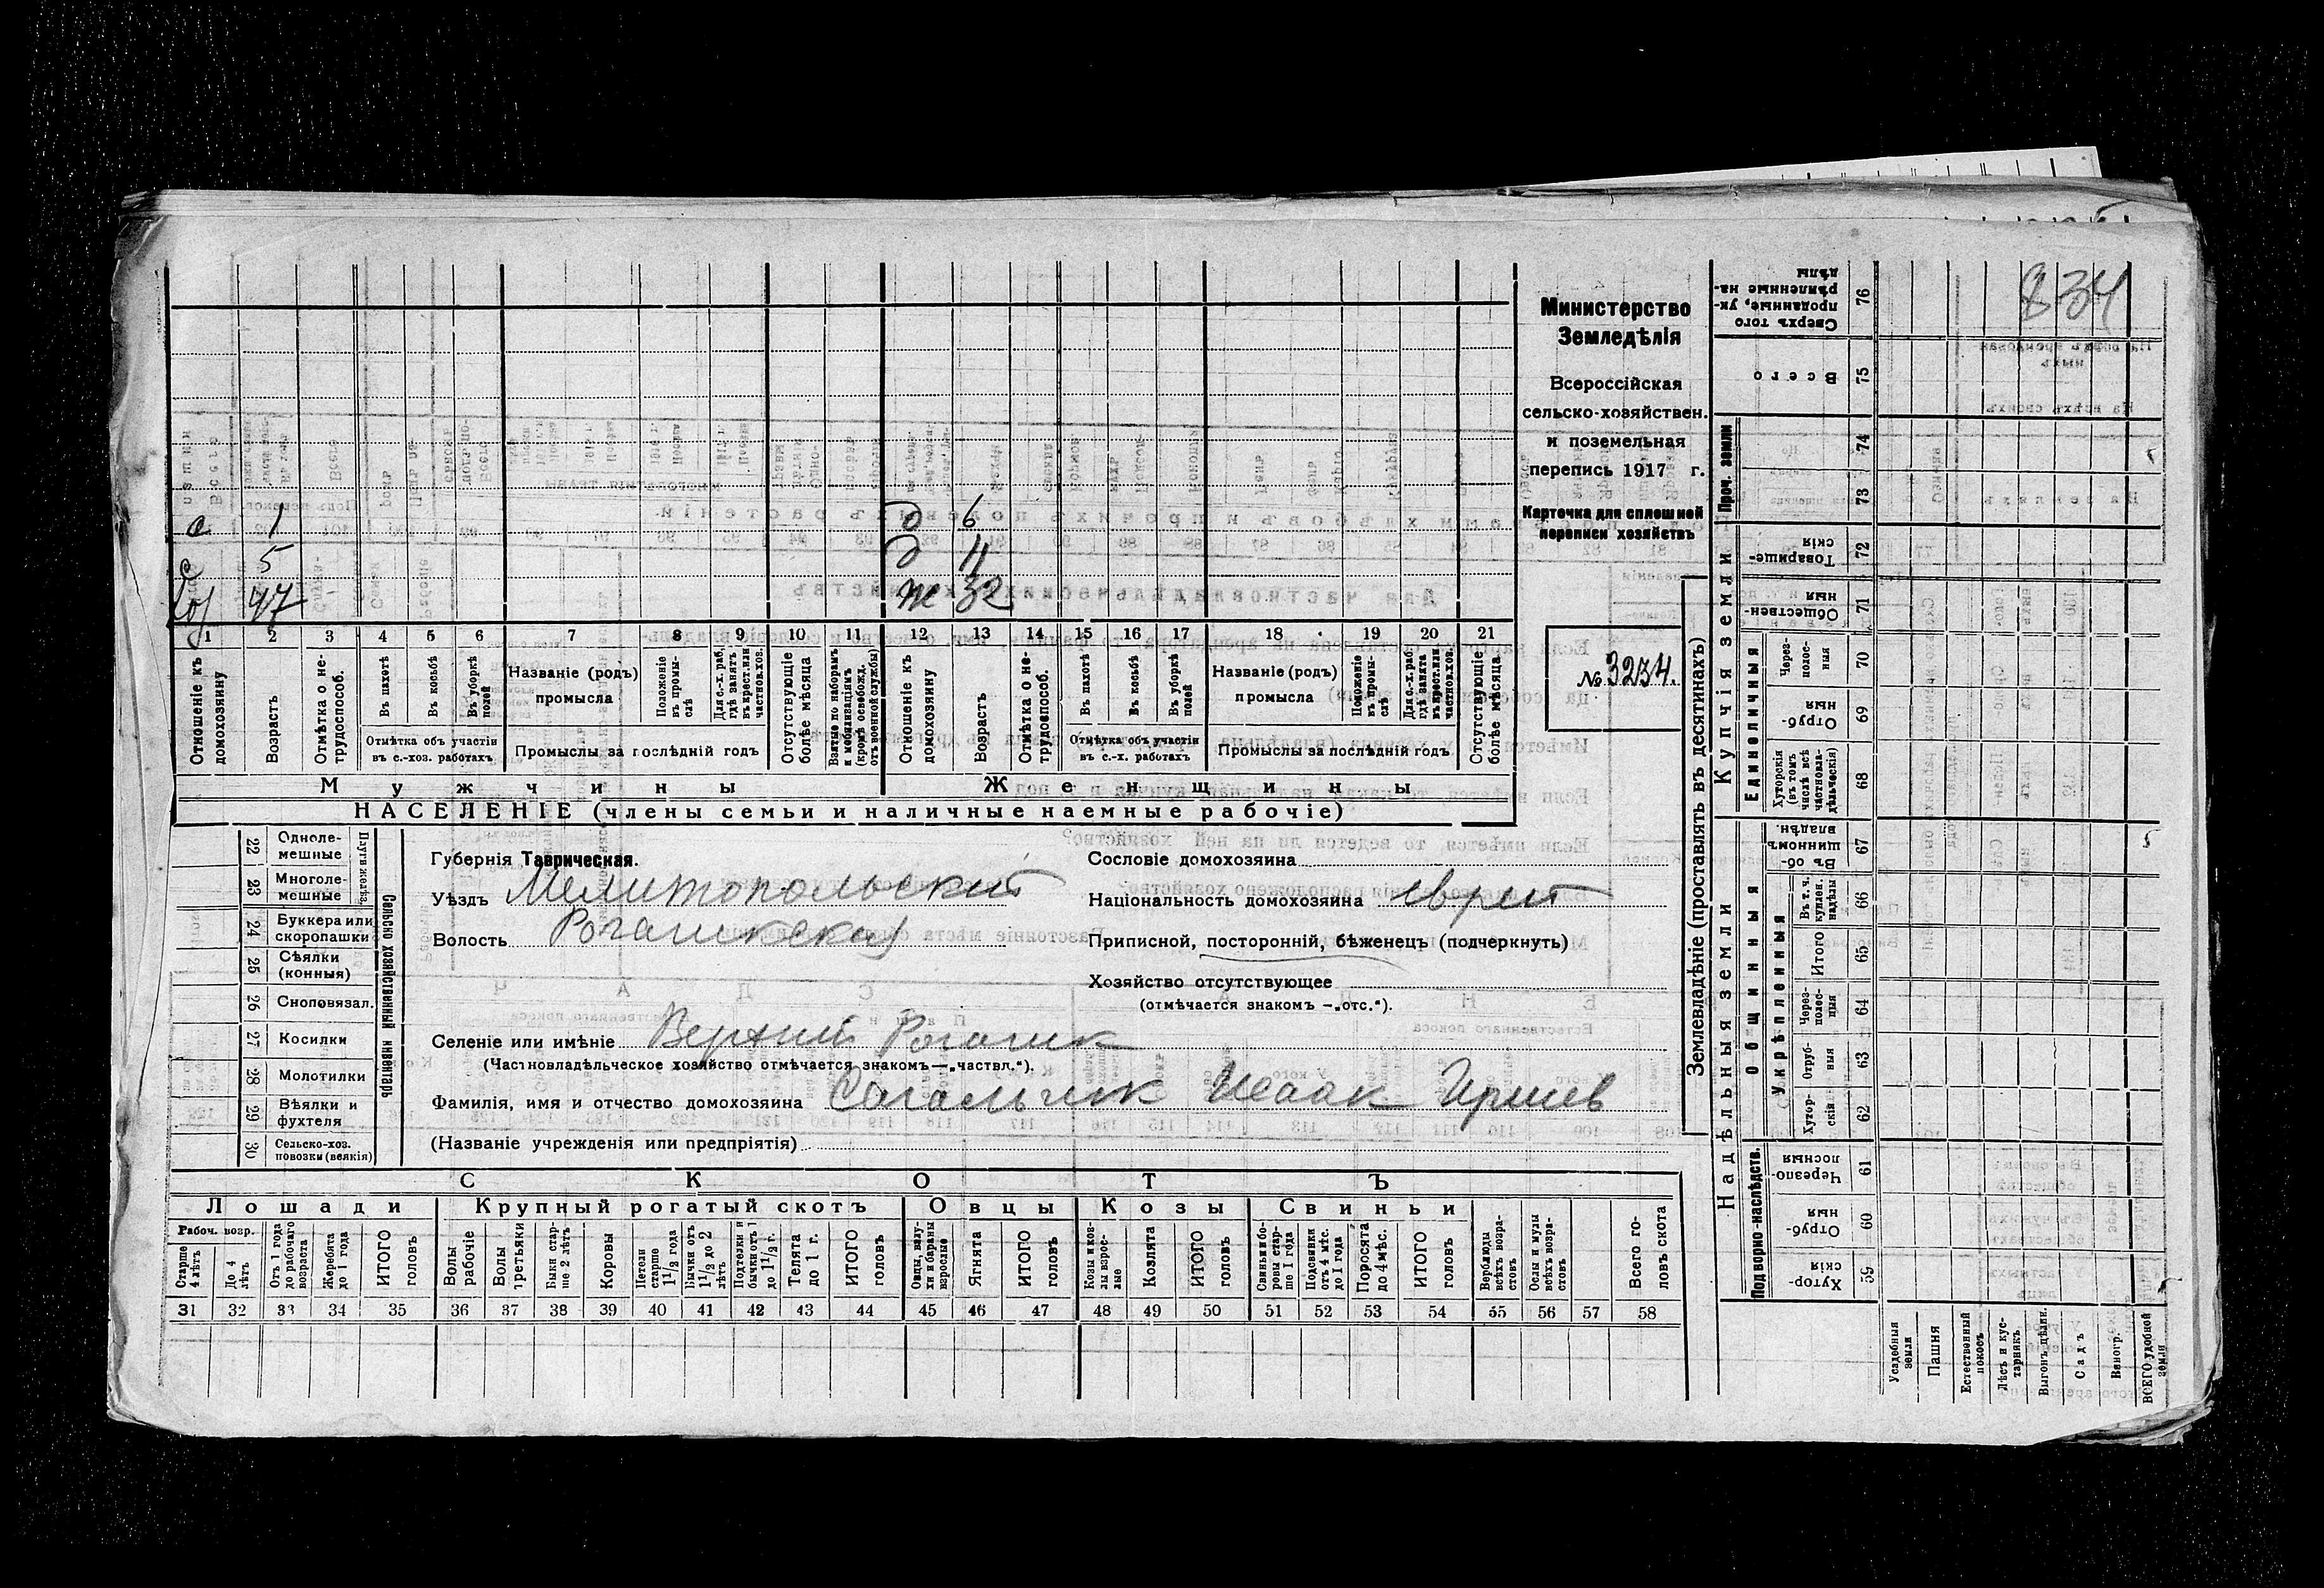 834
Министерство
Земледѣлія
Всероссійская
сельско-хозяйствен.
и поземельная
перепись 1917 г.
Карточка для сплошной
переписи хозяйствъ
№ 3234.
с 1
с 5
47
д 6
д 4
ж 32
1 2 3 4 5 6 7 8 9 10 11 12 13 14 15 16 17 18 19 20 21
Отношеніе къ домохозяину
Возрастъ
Отмѣтка о нетрудоспособ.
Въ пахотѣ
Въ косьбѣ
Въ уборкѣ полей
Отмѣтка объ участіи
въ с.-хоз. работахъ
Названіе (родъ)
промысла
Положеніе въ промыслѣ
Для с.-х. раб, гдѣ занятъ въ крест. или частнов. хоз.
Промыслы за послѣдній годъ
Отсутствующіе болѣе мѣсяца
Взятые по наборамъ и мобилизаціямъ (кромѣ освобожд. отъ военной службы)
Отношеніе къ домохозяину
Возрастъ
Отмѣтка о нетрудоспособ.
Въ пахотѣ
Въ косьбѣ
Въ уборкѣ полей
Отмѣтка объ участіи
въ с.-х. работахъ
Названіе (родъ)
промысла
Положеніе въ промыслѣ
Для с.-х. раб. гдѣ занята въ крест. или частнов. хоз.
Промыслы за послѣдній годъ
Отсутствующіе болѣе мѣсяца
Мужчины Женщины
НАСЕЛЕНІЕ (члены семьи и наличные наемные рабочіе)
Сельско хозяйственный инвентарь
Плуги желѣз.
22 Одноле-
мешные
23 Многоле-
мешные
24 Буккера или
скоропашки
25 Сѣялки
(конныя)
26 Сноповязал.
27 Косилки
28 Молотилки
29 Вѣялки и
фухтеля
30 Сельско-хоз.
повозки (всякія)
Губернія Таврическая.
Уѣздъ Мелитопольский
Волость Рогачикская
Сословіе домохозяина
Національность домохозяина еврей
Приписной, посторонній, бѣженецъ (подчеркнуть)
Хозяйство отсутствующее
(отмѣчается знакомъ —„отс.“).
Селеніе или имѣніе Верхний Рогачик
(Частновладѣльческое хозяйство отмѣчается знакомъ—„частвл.“).
Фамилія, имя и отчество домохозяина Сагальчик Исаак Иршев
(Названіе учрежденія или предпріятія)
СКОТЪ
Лошади Крупный рогатый скотъ Овцы Козы Свиньи
Рабоч. возр.
Старше 4 лѣтъ
До 4 лѣтъ
Отъ 1 года до рабочаго возраста
Жеребята до 1 года
ИТОГО головъ
Волы рабочіе
Волы третьяки
Быки старше 2 лѣтъ
Коровы
Нетели старше 1 1/2 года
Бычки отъ 1 1/2 до 2 лѣтъ
Подтелки и бычки отъ 1 до 1 1/2 г.
Телята до 1 г.
ИТОГО головъ
Овцы, валухи и бараны взрослые
Ягнята
ИТОГО головъ
Козы и козлы взрослые
Козлята
ИТОГО головъ
Свиньи и боровы старше 1 года
Подсвинки отъ 4 мѣс. до 1 года
Поросята до 4 мѣс.
ИТОГО головъ
Верблюды всѣхъ возрастовъ
Ослы и мулы всѣхъ возрастовъ
Всего головъ скота
31 32 33 34 35 36 37 38 39 40 41 42 43 44 45 46 47 48 49 50 51 52 53 54 55 56 57 58
Землевладѣніе (проставлять въ десятинахъ)
Надѣльныя земли Купчія земли
Подворно-наслѣдств.
Общинныя
Укрѣпленныя
Единоличныя
Проч. земли
Сверхъ того проданные, укрѣпленные надѣлы 76
Всего 75
74
73
Товарищескія 72
Общественныя 71
Черезполосныя 70
Отрубныя 69
Хуторскія (въ томъ числѣ всѣ частновладѣльческія) 68
Въ общинномъ владѣн. 67
Въ т. ч. куплен. надѣлы 66
Итого 65
Черезполосныя 64
Отрубныя 63
Хуторскія 62
Черезполосныя 61
Отрубныя 60
Хуторскія 59
Усадебныя земли
Пашня
Естественный покосъ
Лѣсъ и кустарникъ
Выгонъ, цѣлин.
Садъ
Виногр.
ВСЕГО удобной земли